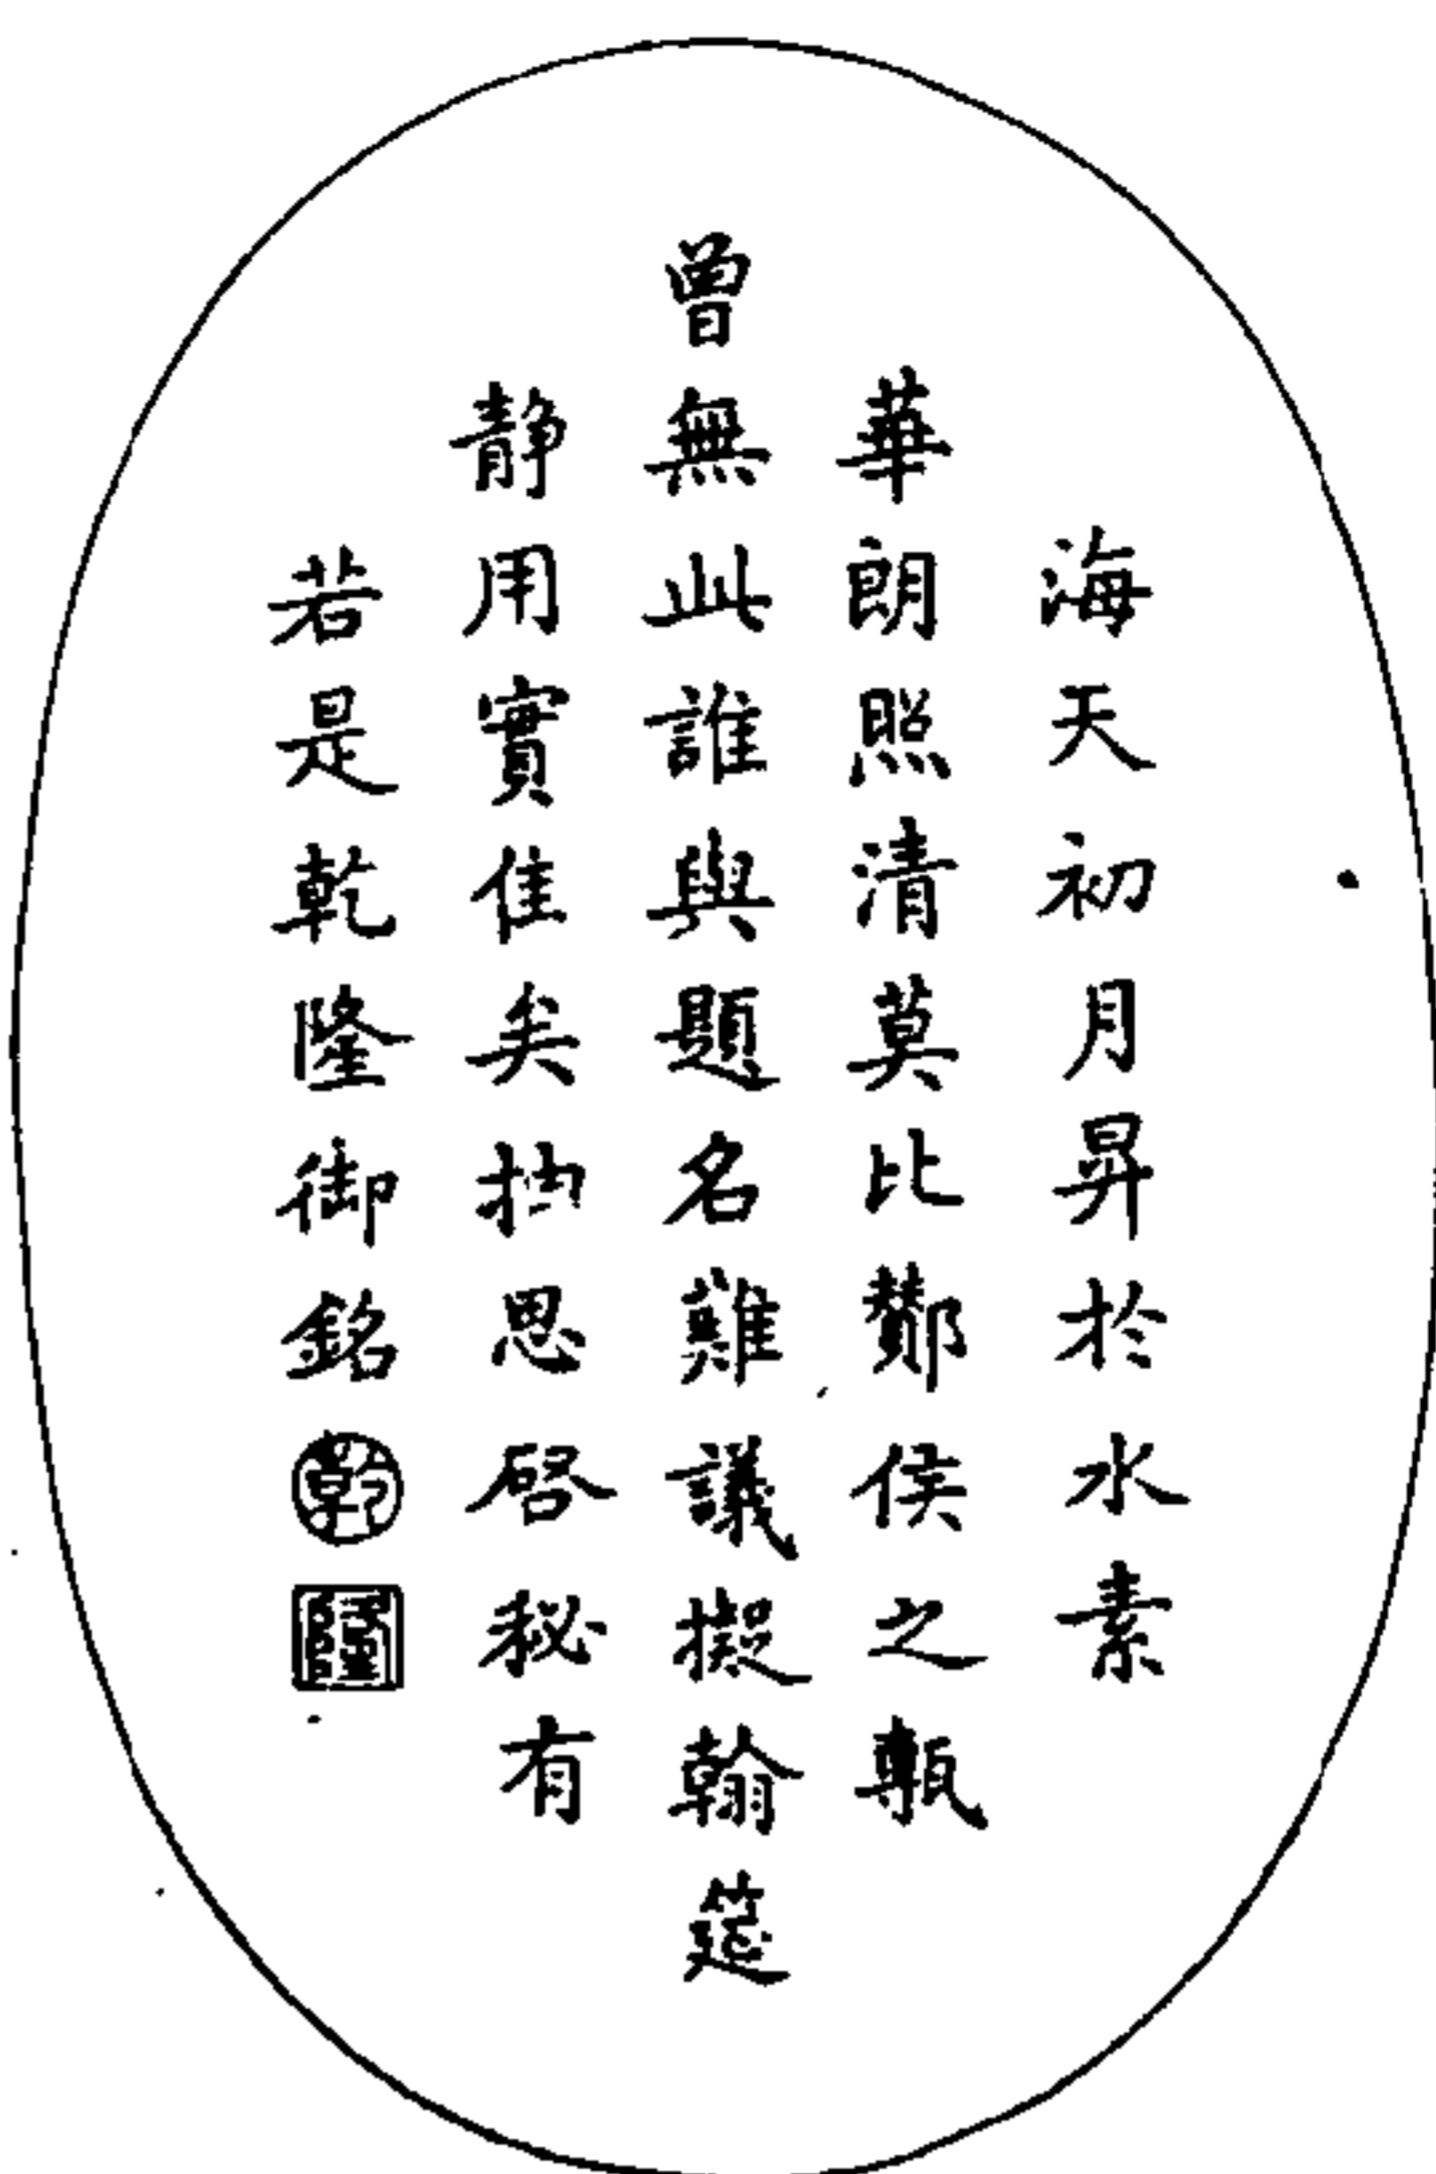 海天初月昇於水素
華朗照清莫比酇侯之甎
曾無此誰與題名難議擬翰筵
静用實佳矣抽思啓秘有
若是乾隆御銘乾隆